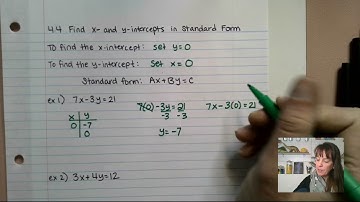 4.4 Find x- and y-intercepts in Standard Form
To find the x-intercept: set y=0
To find the y-intercept: set x=0
Standard form: Ax+By=C
ex 1) 7x-3y=21 7(0)-3y=21 7x-3(0)=21
-3 -3
x y
0 -7 y=-7
0
ex 2) 3x+4y=12